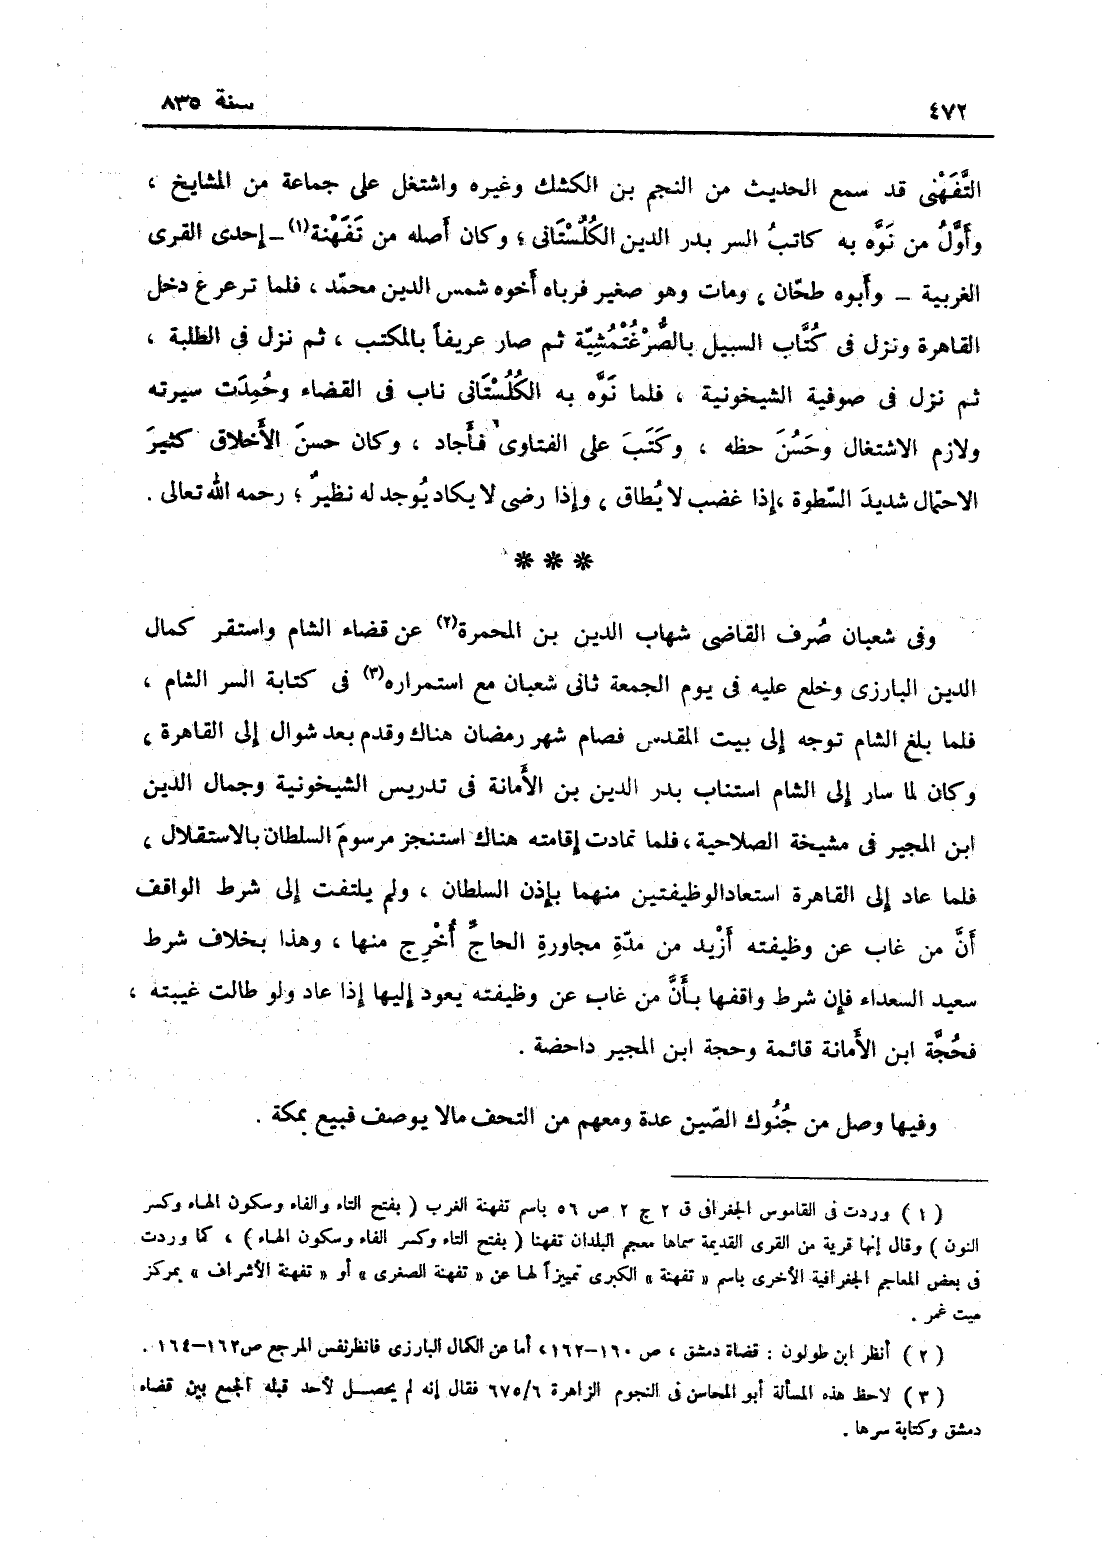 ٤٧٢
سنة ٨٣٥
التَّفَهْنى قد سمع الحديث من النجم بن الكشك وغيره واشتغل على جماعة من المشايخ ،
وأَوَّلُ من نَوَّه به كاتبُ السر بدر الدين الكُلُسْتَانى ؛ وكان أصله من تَفَهْنة(١) ـ إحدى القرى
الغربية ـ وأَبوه طحّان ، ومات وهو صغير فرباه أخوه شمس الدين محمّد ، فلما ترعرع دخل
القاهرة ونزل فى كُتَّاب السبيل بالصَّرْغُتْمُشِيّة ثم صار عريفاً بالمكتب ، ثم نزل فى الطلبة ،
ثم نزل فى صوفية الشيخونية ، فلما نَوَّه به الكُلُسْتَانى ناب فى القضاء وحُمِدَت سيرته
ولازم الاشتغال وحَسُنَ حظه ، وكَتَبَ على الفتاوى فأَجاد ، وكان حسنَ الأَخلاق كثيرَ
الاحتمال شديدَ السّطوة ، إذا غضب لا يُطاق ، وإذا رضى لا يكاد يُوجد له نظيرٌ ؛ رحمه الله تعالى .
* * *
وفى شعبان صُرف القاضى شهاب الدين بن المحمرة(٢) عن قضاء الشام واستقر كمال
الدين البارزى وخلع عليه فى يوم الجمعة ثانى شعبان مع استمراره(٣) فى كتابة السر الشام ،
فلما بلغ الشام توجه إلى بيت المقدس فصام شهر رمضان هناك وقدم بعد شوال إلى القاهرة ،
وكان لما سار إلى الشام استناب بدر الدين بن الأَمانة فى تدريس الشيخونية وجمال الدين
ابن المجير فى مشيخة الصلاحية ، فلما تمادت إقامته هناك استنجز مرسومَ السلطان بالاستقلال ،
فلما عاد إلى القاهرة استعاد الوظيفتين منهما بإذن السلطان ، ولم يلتفت إلى شرط الواقف
أَنَّ من غاب عن وظيفته أَزْيد من مدّةِ مجاورةِ الحاجِّ أُخْرِج منها ، وهذا بخلاف شرط
سعيد السعداء فإن شرط واقفها بأَنَّ من غاب عن وظيفته يعود إليها إذا عاد ولو طالت غيبته ،
فحُجَّة ابن الأَمانة قائمة وحجة ابن المجير داحضة .
وفيها وصل من جُنُوك الصّين عدة ومعهم من التحف مالا يوصف فبيع بمكة .
( ١ ) وردت فى القاموس الجغرافى ق ٢ ج ٢ ص ٥٦ باسم تفهنة الغرب ( بفتح التاء والفاء وسكون الهاء وكسر
النون ) وقال إنها قرية من القرى القديمة سماها معجم البلدان تفهنا ( بفتح التاء وكسر الفاء وسكون الهاء ) ، كما وردت
فى بعض المعاجم الجغرافية الأخرى باسم « تفهنة » الكبرى تمييزاً لها عن « تفهنة الصغرى » أو « تفهنة الأشراف » بمركز
ميت غمر .
( ٢ ) أنظر ابن طولون : قضاة دمشق ، ص ١٦٠ـ١٦٢ ، أما عن الكمال البارزى فانظر نفس المرجع ص١٦٢ـ١٦٤ .
( ٣ ) لاحظ هذه المسألة أبو المحاسن فى النجوم الزاهرة ٦/٦٧٥ فقال إنه لم يحصل لأحد قبله الجمع بين قضاء
دمشق وكتابة سرها .